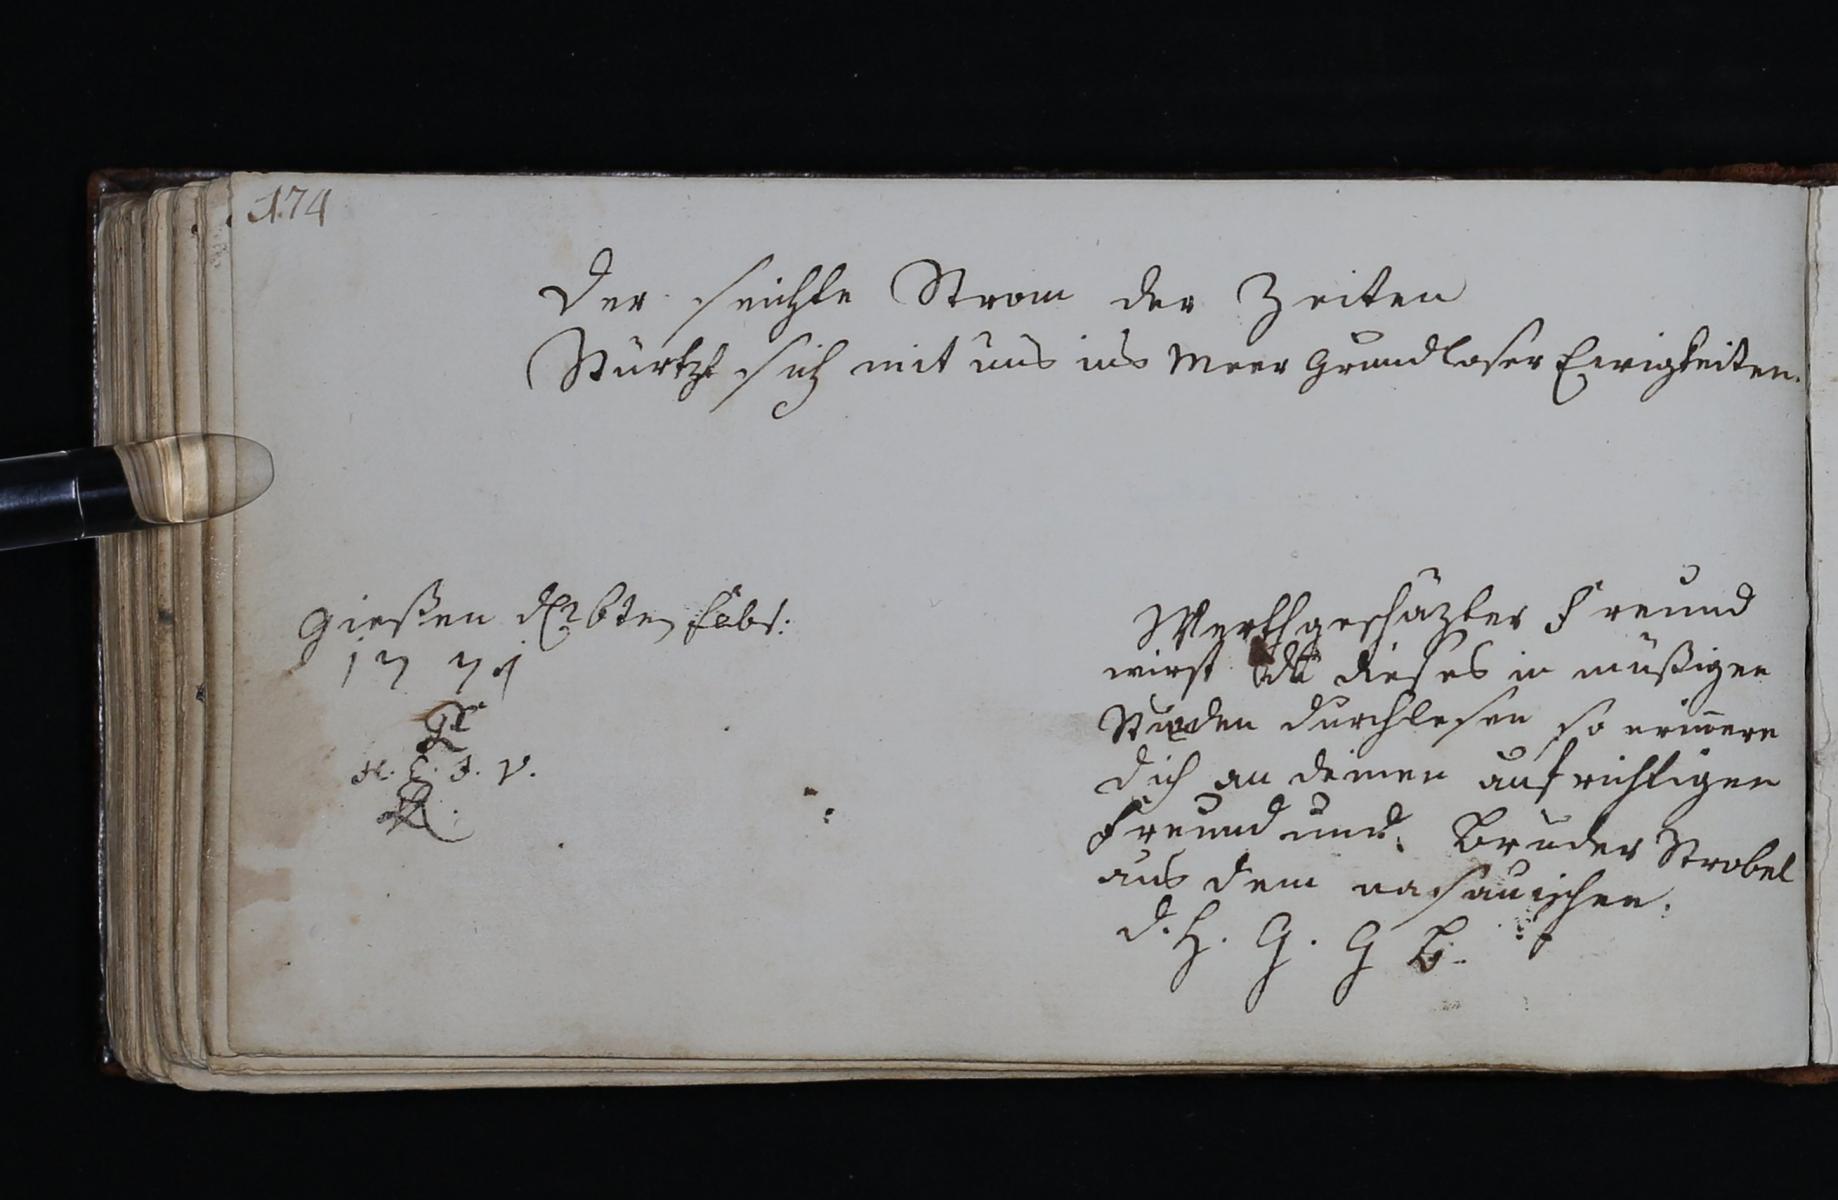 174
Der seichte Strom der Zeiten
Stürtzt sich mit uns ins Meer Grundloser Ewigkeiten.
Gießen d 26ten Febr:
1774
H. E. F. V.
Werthgeschäzter Freund
wirst du dieses in müßigen
Stunden durchlesen so erinnere
dich an deinen aufrichtigen
Freund und Bruder Strobel
aus dem nasauischen.
d. H. G. G B.